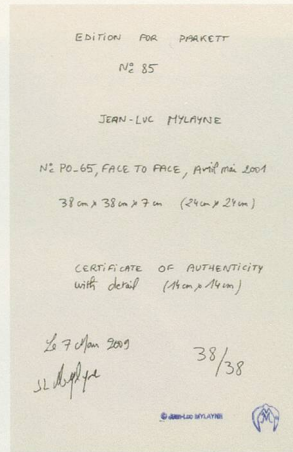 EDITION FOR PARKETT
No 85
JEAN-LUC MYLAYNE
No PO-65, FACE TO FACE, Avril mai 2001
38 cm x 38 cm x 7 cm (24 cm x 24 cm)
CERTIFICATE OF AUTHENTICITY
with detail (14 cm x 14 cm)
Le 7 Mars 2009
38/38
JL Mylayne
© JEAN-LUC MYLAYNE